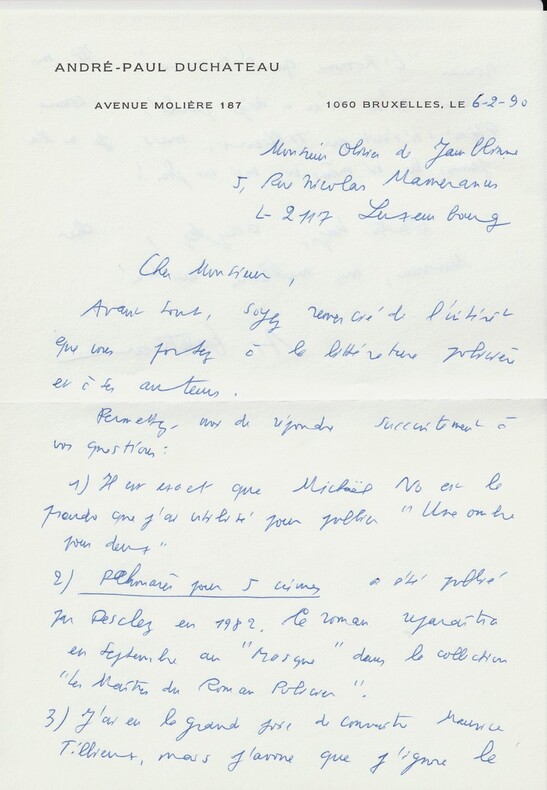 ANDRÉ-PAUL DUCHATEAU
AVENUE MOLIÈRE 187 1060 BRUXELLES, LE 6-2-90
Monsieur Olivier de
5, Rue Nicolas Mameranus
L-2117 Luxembourg
Cher Monsieur,
Avant tout, soyez remercié de l'intérêt
que vous portez à la littérature policière
et à ses auteurs.
Permettez-moi de répondre succinctement à
vos questions :
1) Il est exact que Michaël No est le
pseudo que j'ai utilisé pour publier "Une ombre
pour deux"
2) Palmarès pour 5 crimes a été publié
par Desclez en 1982. Ce roman reparaîtra
en Septembre au "Masque" dans la collection
"Les Maîtres du Roman Policier".
3) J'ai eu la grande joie de connaître Maurice
Tillieux, mais j'avoue que j'ignore le